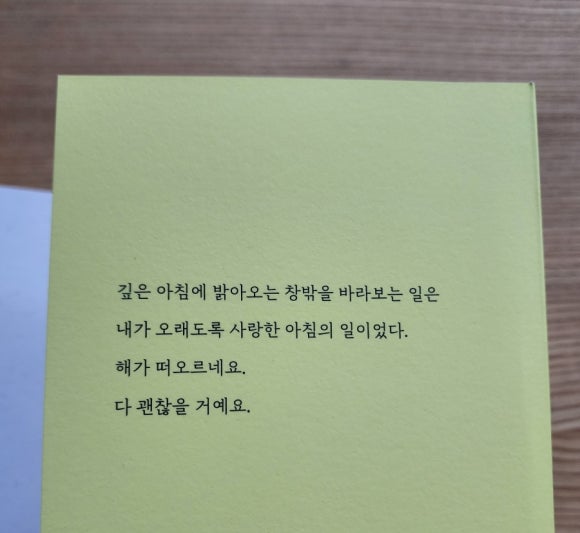 깊은 아침에 밝아오는 창밖을 바라보는 일은
내가 오래도록 사랑한 아침의 일이었다.
해가 떠오르네요.
다 괜찮을 거예요.